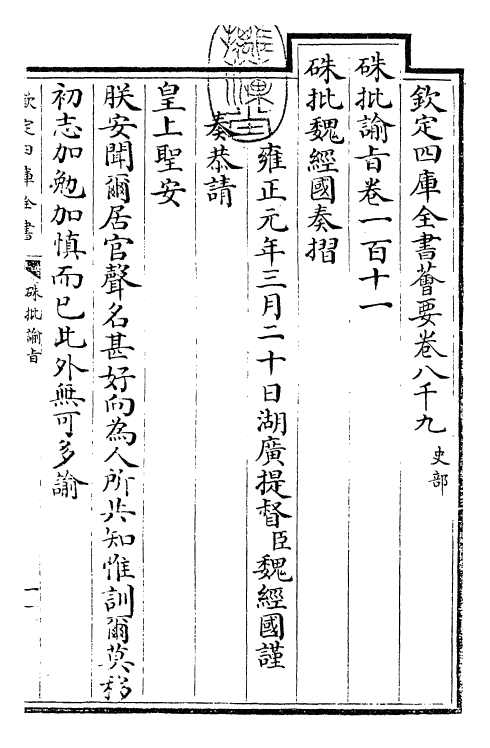 欽定四庫全書薈要卷八千九 史部
硃批諭㫖卷一百十一
硃批魏經國奏摺
雍正元年三月二十日湖廣提督臣魏經國謹
奏恭請
皇上聖安
朕安聞爾居官聲名甚好向為人所共知惟訓爾莫移
初志加勉加慎而已此外無可多諭
欽定四庫全書
硃批諭㫖
一